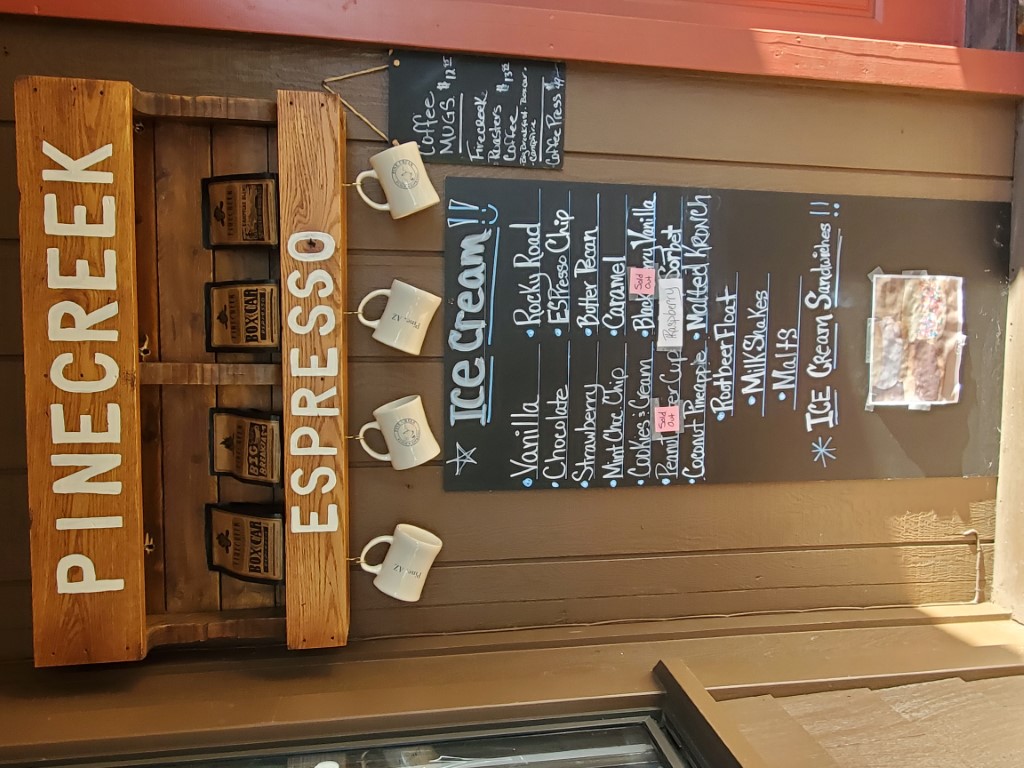 PINECREEK
BOXCAR
BOXCAR
ESPRESSO
Pine, AZ
Pine, AZ
Coffee
MUGS $12.00
Firecreek
Roasters $15.00
Coffee
Coffee Press
Ice Cream!!
• Vanilla
• Chocolate
• Strawberry
• Mint Choc. Chip
• Cookies & Cream
Sold Out
• Coconut Pineapple
• Rocky Road
• Espresso Chip
• Butter Pecan
• Caramel
Sold Out
Vanilla
Raspberry Sorbet
• Malted Krunch
• Rootbeer Float
• Milkshakes
• Malts
Ice Cream Sandwiches!!